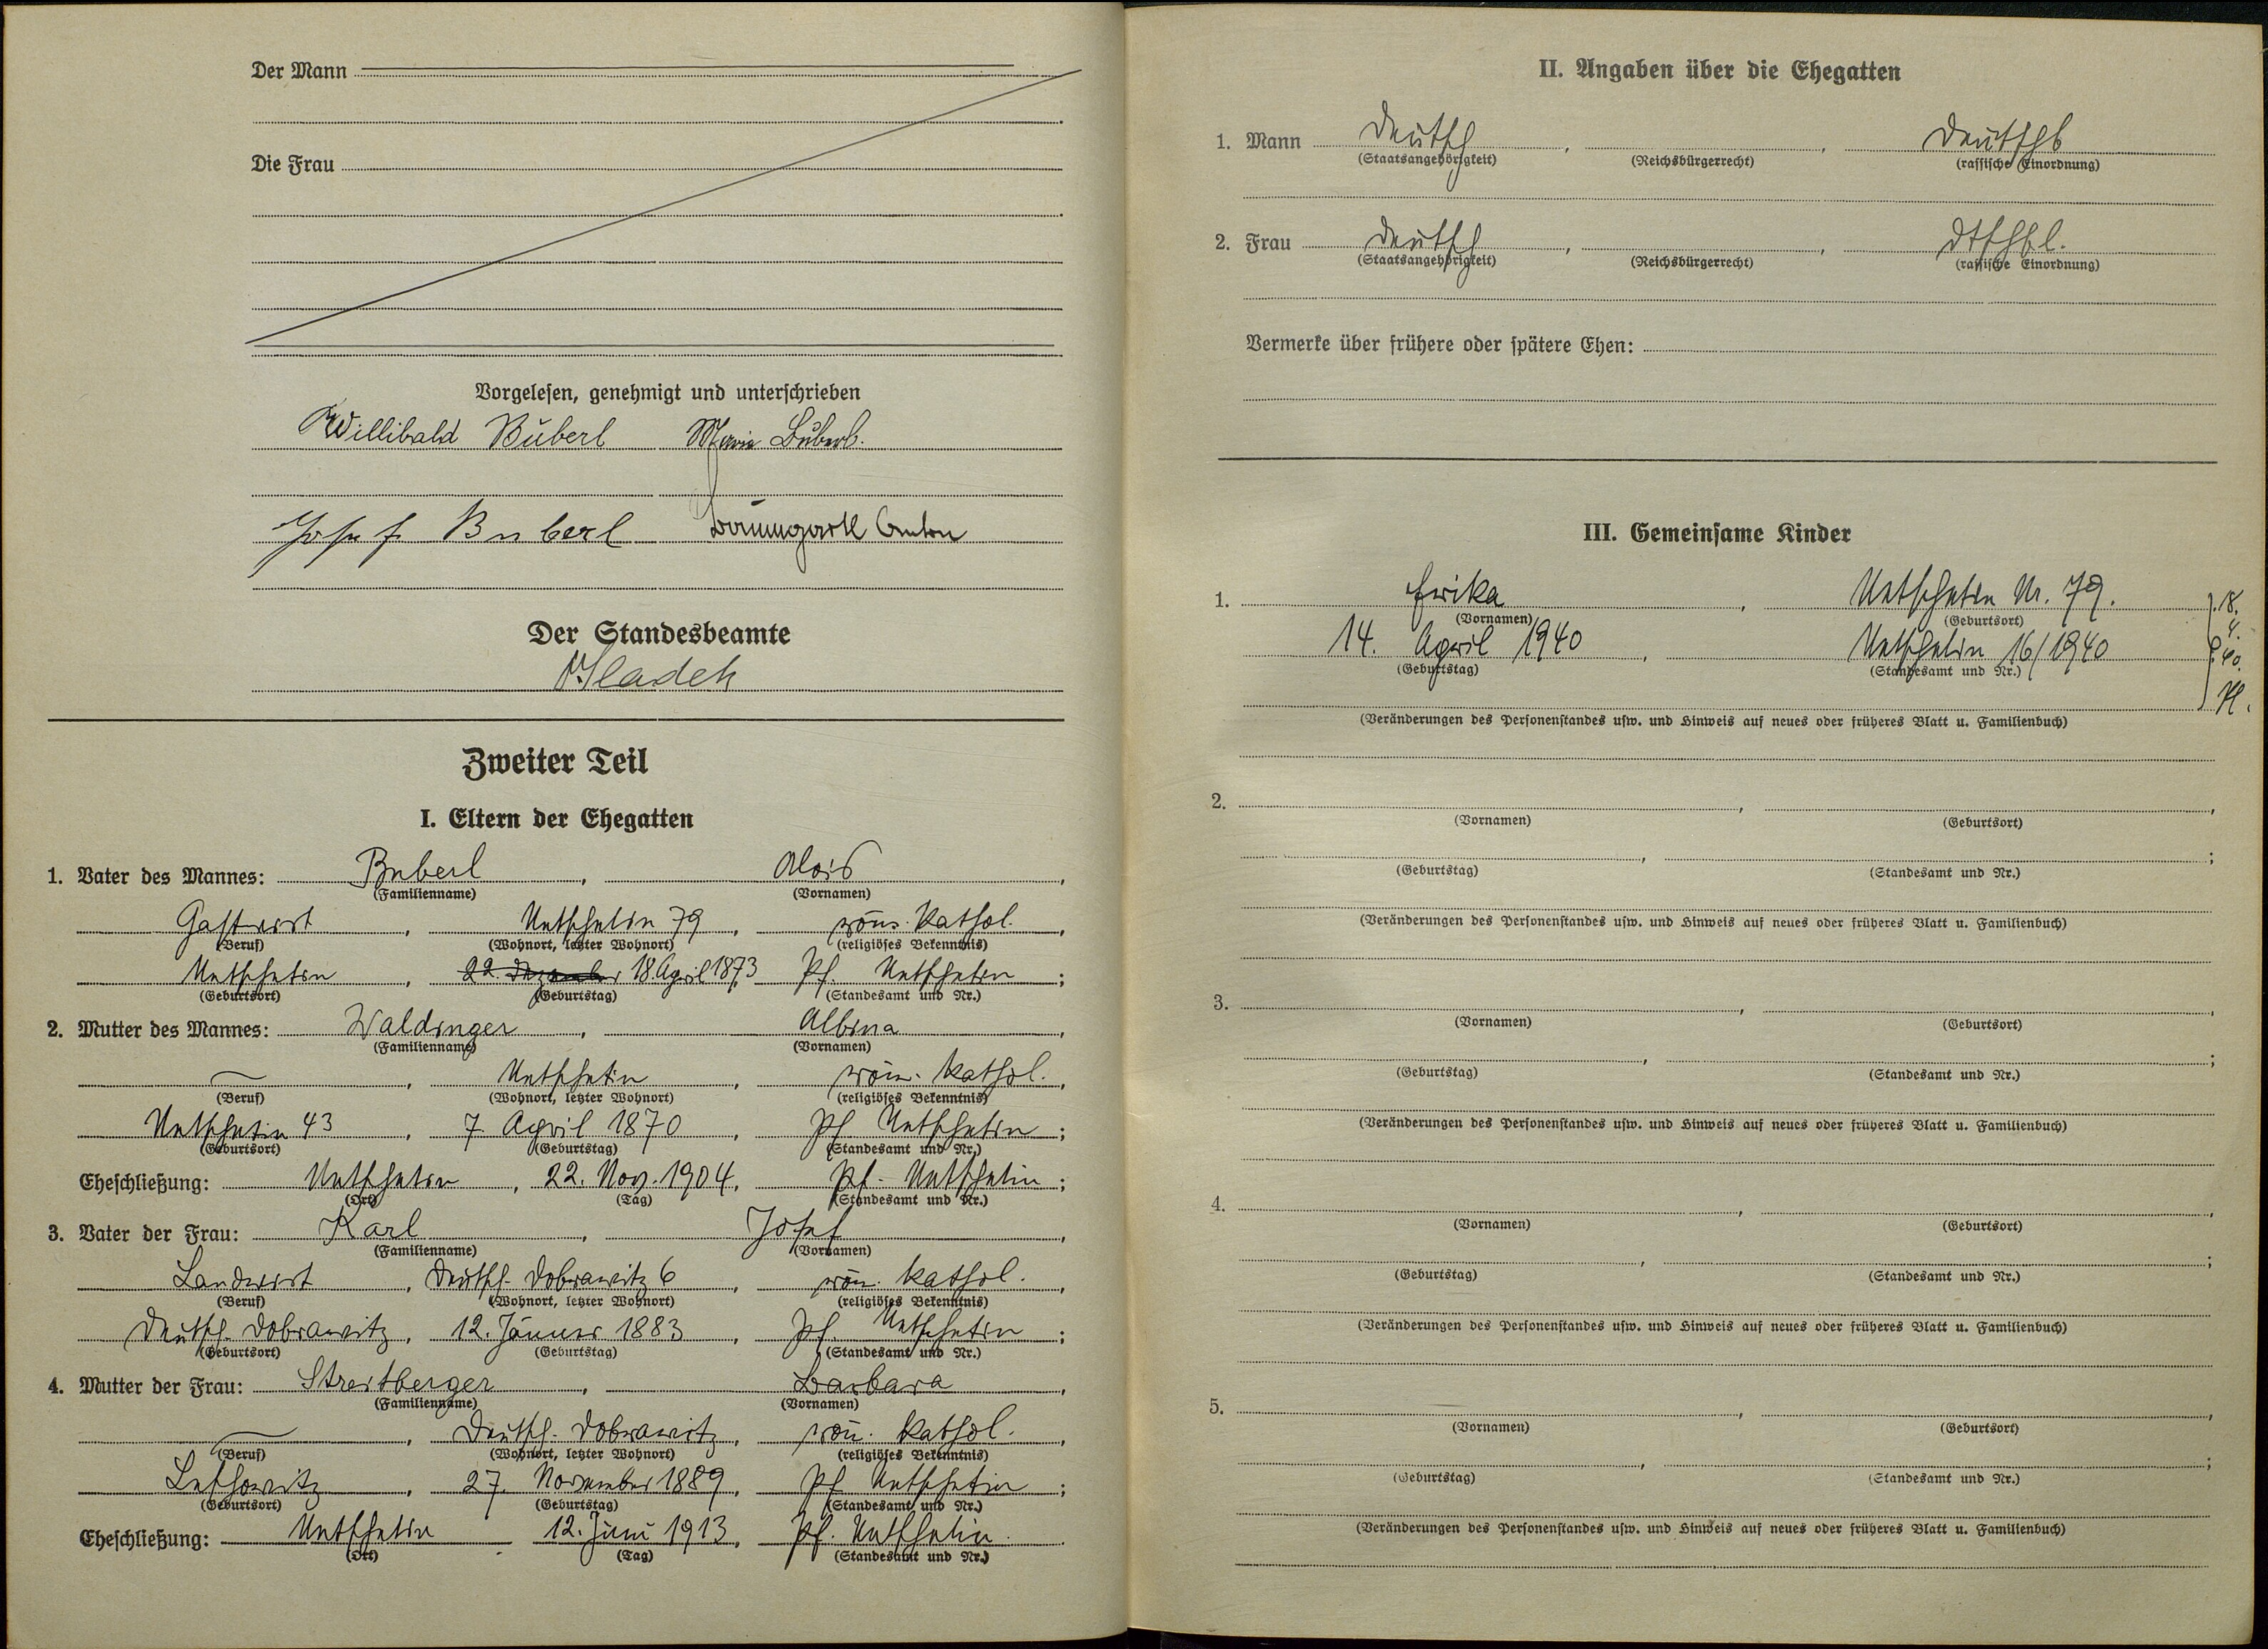 Der Mann
Die Frau
Vorgelesen, genehmigt und unterschrieben
Willibald Buberl Marie Buberl.
Josef Buberl Baumgartl Anton
Der Standesbeamte
Sladek
Zweiter Teil
I. Eltern der Ehegatten
1. Vater des Mannes: Buberl, Alois,
(Familienname) (Vornamen)
Gastwirt, Netschetin 79, röm. kathol.,
(Beruf) (Wohnort, letzter Wohnort) (religiöses Bekenntnis)
Netschetin, 22. Dezember 18. April 1873 Pf. Netschetin;
(Geburtsort) (Geburtstag) (Standesamt und Nr.)
2. Mutter des Mannes: Waldinger, Albina,
(Familienname) (Vornamen)
—, Netschetin, röm. kathol.,
(Beruf) (Wohnort, letzter Wohnort) (religiöses Bekenntnis)
Netschetin 43, 7. April 1870, Pf. Netschetin;
(Geburtsort) (Geburtstag) (Standesamt und Nr.)
Eheschließung: Netschetin, 22. Nov. 1904, Pf. Netschetin;
(Ort) (Tag) (Standesamt und Nr.)
3. Vater der Frau: Karl, Josef,
(Familienname) (Vornamen)
Landwirt, Deutsch-Dobrawitz 6, röm. kathol.,
(Beruf) (Wohnort, letzter Wohnort) (religiöses Bekenntnis)
Deutsch-Dobrawitz, 12. Jänner 1883, Pf. Netschetin;
(Geburtsort) (Geburtstag) (Standesamt und Nr.)
4. Mutter der Frau: Streitberger, Barbara,
(Familienname) (Vornamen)
—, Deutsch-Dobrawitz, röm. kathol.,
(Beruf) (Wohnort, letzter Wohnort) (religiöses Bekenntnis)
Leschowitz, 27. November 1889, Pf. Netschetin;
(Geburtsort) (Geburtstag) (Standesamt und Nr.)
Eheschließung: Netschetin 12. Juni 1913, Pf. Netschetin.
(Ort) (Tag) (Standesamt und Nr.)
II. Angaben über die Ehegatten
1. Mann Deutsch, , Deutschb
(Staatsangehörigkeit) (Reichsbürgerrecht) (rassische Einordnung)
2. Frau Deutsch, , Dtschbl.
(Staatsangehörigkeit) (Reichsbürgerrecht) (rassische Einordnung)
Vermerke über frühere oder spätere Ehen:
III. Gemeinsame Kinder
1. Erika, Netschetin Nr. 79.
(Vornamen) (Geburtsort)
14. April 1940, Netschetin 16/1940
(Geburtstag) (Standesamt und Nr.)
18.
4.
40.
(Veränderungen des Personenstandes usw. und Hinweis auf neues oder früheres Blatt u. Familienbuch)
2. , ,
(Vornamen) (Geburtsort)
, ;
(Geburtstag) (Standesamt und Nr.)
(Veränderungen des Personenstandes usw. und Hinweis auf neues oder früheres Blatt u. Familienbuch)
3. , ,
(Vornamen) (Geburtsort)
, ;
(Geburtstag) (Standesamt und Nr.)
(Veränderungen des Personenstandes usw. und Hinweis auf neues oder früheres Blatt u. Familienbuch)
4. , ,
(Vornamen) (Geburtsort)
, ;
(Geburtstag) (Standesamt und Nr.)
(Veränderungen des Personenstandes usw. und Hinweis auf neues oder früheres Blatt u. Familienbuch)
5. , ,
(Vornamen) (Geburtsort)
, ;
(Geburtstag) (Standesamt und Nr.)
(Veränderungen des Personenstandes usw. und Hinweis auf neues oder früheres Blatt u. Familienbuch)